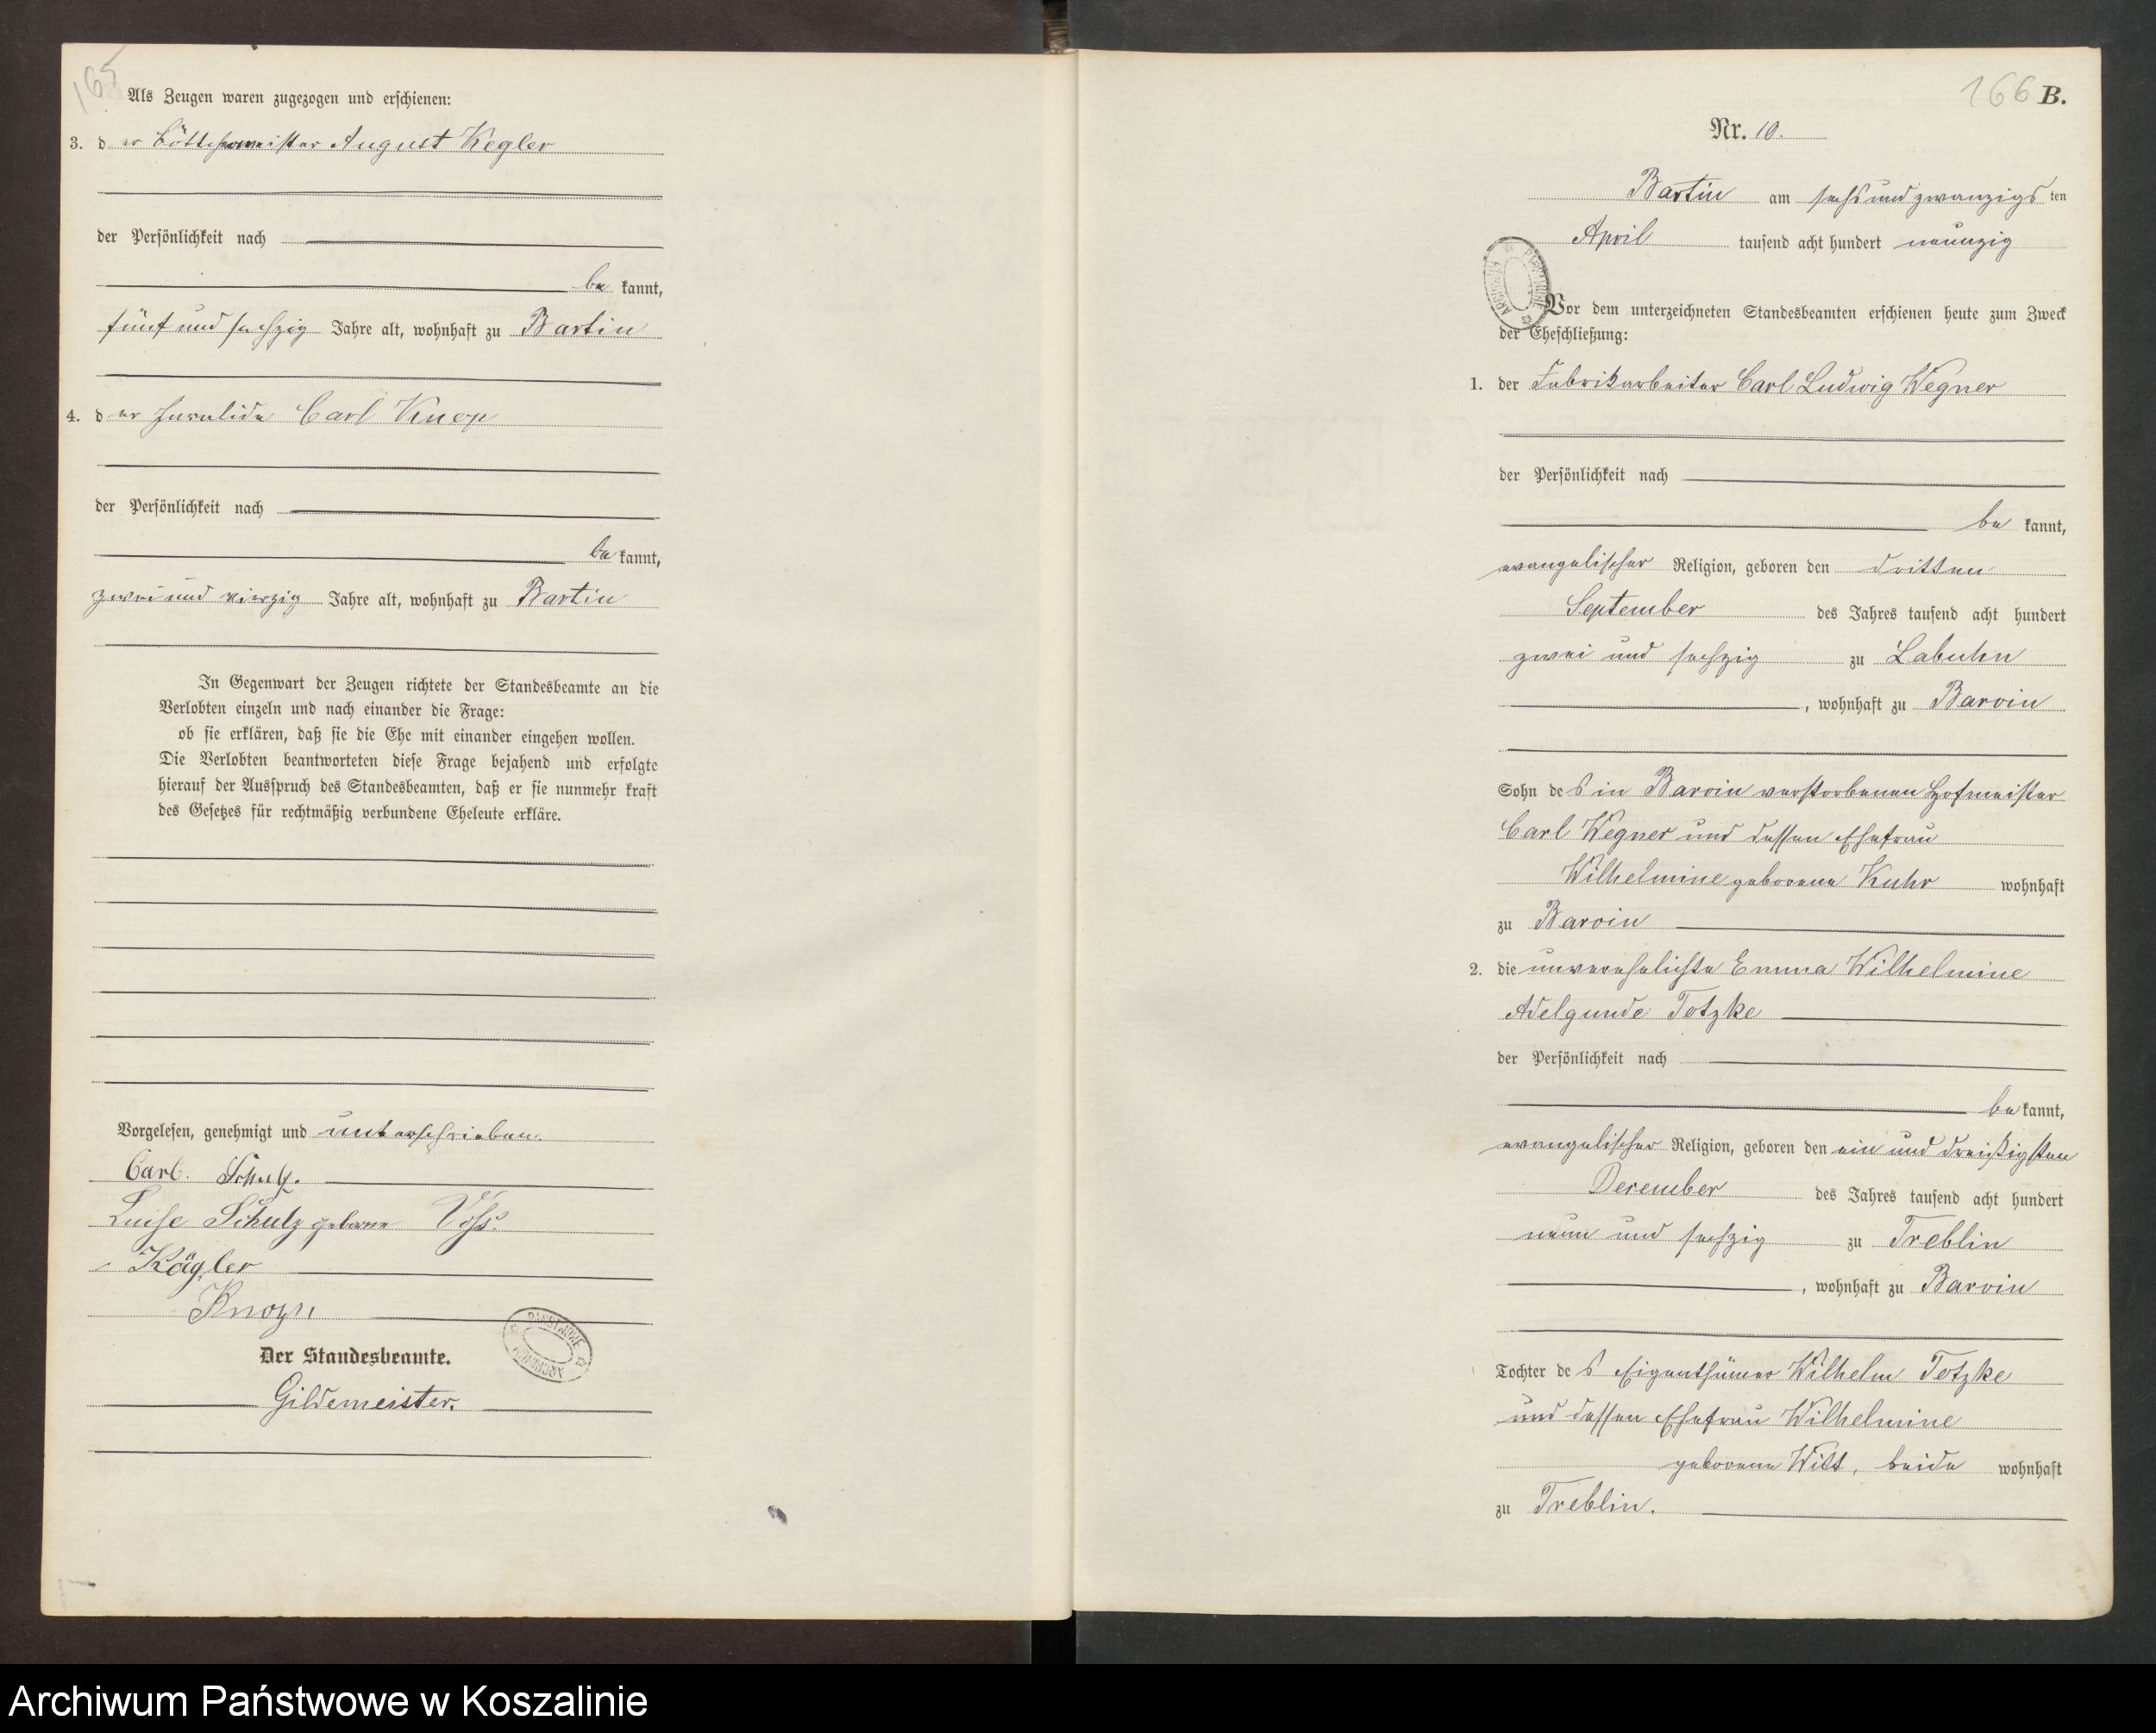 165
Als Zeugen waren zugezogen und erschienen:
3. d er Böttchermeister August Kegler
der Persönlichkeit nach
be kannt,
fünf und sechzig Jahre alt, wohnhaft zu Bartin
4. d er Invalide Carl Knop
der Persönlichkeit nach
be kannt,
zwei und vierzig Jahre alt, wohnhaft zu Bartin
In Gegenwart der Zeugen richtete der Standesbeamte an die
Verlobten einzeln und nach einander die Frage:
ob sie erklären, daß sie die Ehe mit einander eingehen wollen.
Die Verlobten beantworteten diese Frage bejahend und erfolgte
hierauf der Ausspruch des Standesbeamten, daß er sie nunmehr kraft
des Gesetzes für rechtmäßig verbundene Eheleute erkläre.
Vorgelesen, genehmigt und unterschrieben.
Carl Schulz.
Luise Schulz geborene Voß.
Kägler
Knop
Der Standesbeamte.
Gildemeister.
166 B.
Nr. 10.
Bartin am sechs und zwanzigs ten
April tausend acht hundert neunzig
Vor dem unterzeichneten Standesbeamten erschienen heute zum Zweck
der Eheschließung:
1. der Fabrikarbeiter Carl Ludwig Wegner
der Persönlichkeit nach
be kannt,
evangelischer Religion, geboren den dritten
September des Jahres tausend acht hundert
zwei und sechzig zu Labuhn
, wohnhaft zu Barvin
Sohn de s in Barvin verstorbenen Hofmeister
Carl Wegner und dessen Ehefrau
Wilhelmine geborene Kuhr wohnhaft
zu Barvin
2. die unverehelichte Emma Wilhelmine
Adelgunde Totzke
der Persönlichkeit nach
be kannt,
evangelischer Religion, geboren den ein und dreißigsten
December des Jahres tausend acht hundert
neun und sechzig zu Treblin
, wohnhaft zu Barvin
Tochter de s Eigenthümer Wilhelm Totzke
und dessen Ehefrau Wilhelmine
geborene Witt, beide wohnhaft
zu Treblin.
Archiwum Państwowe w Koszalinie